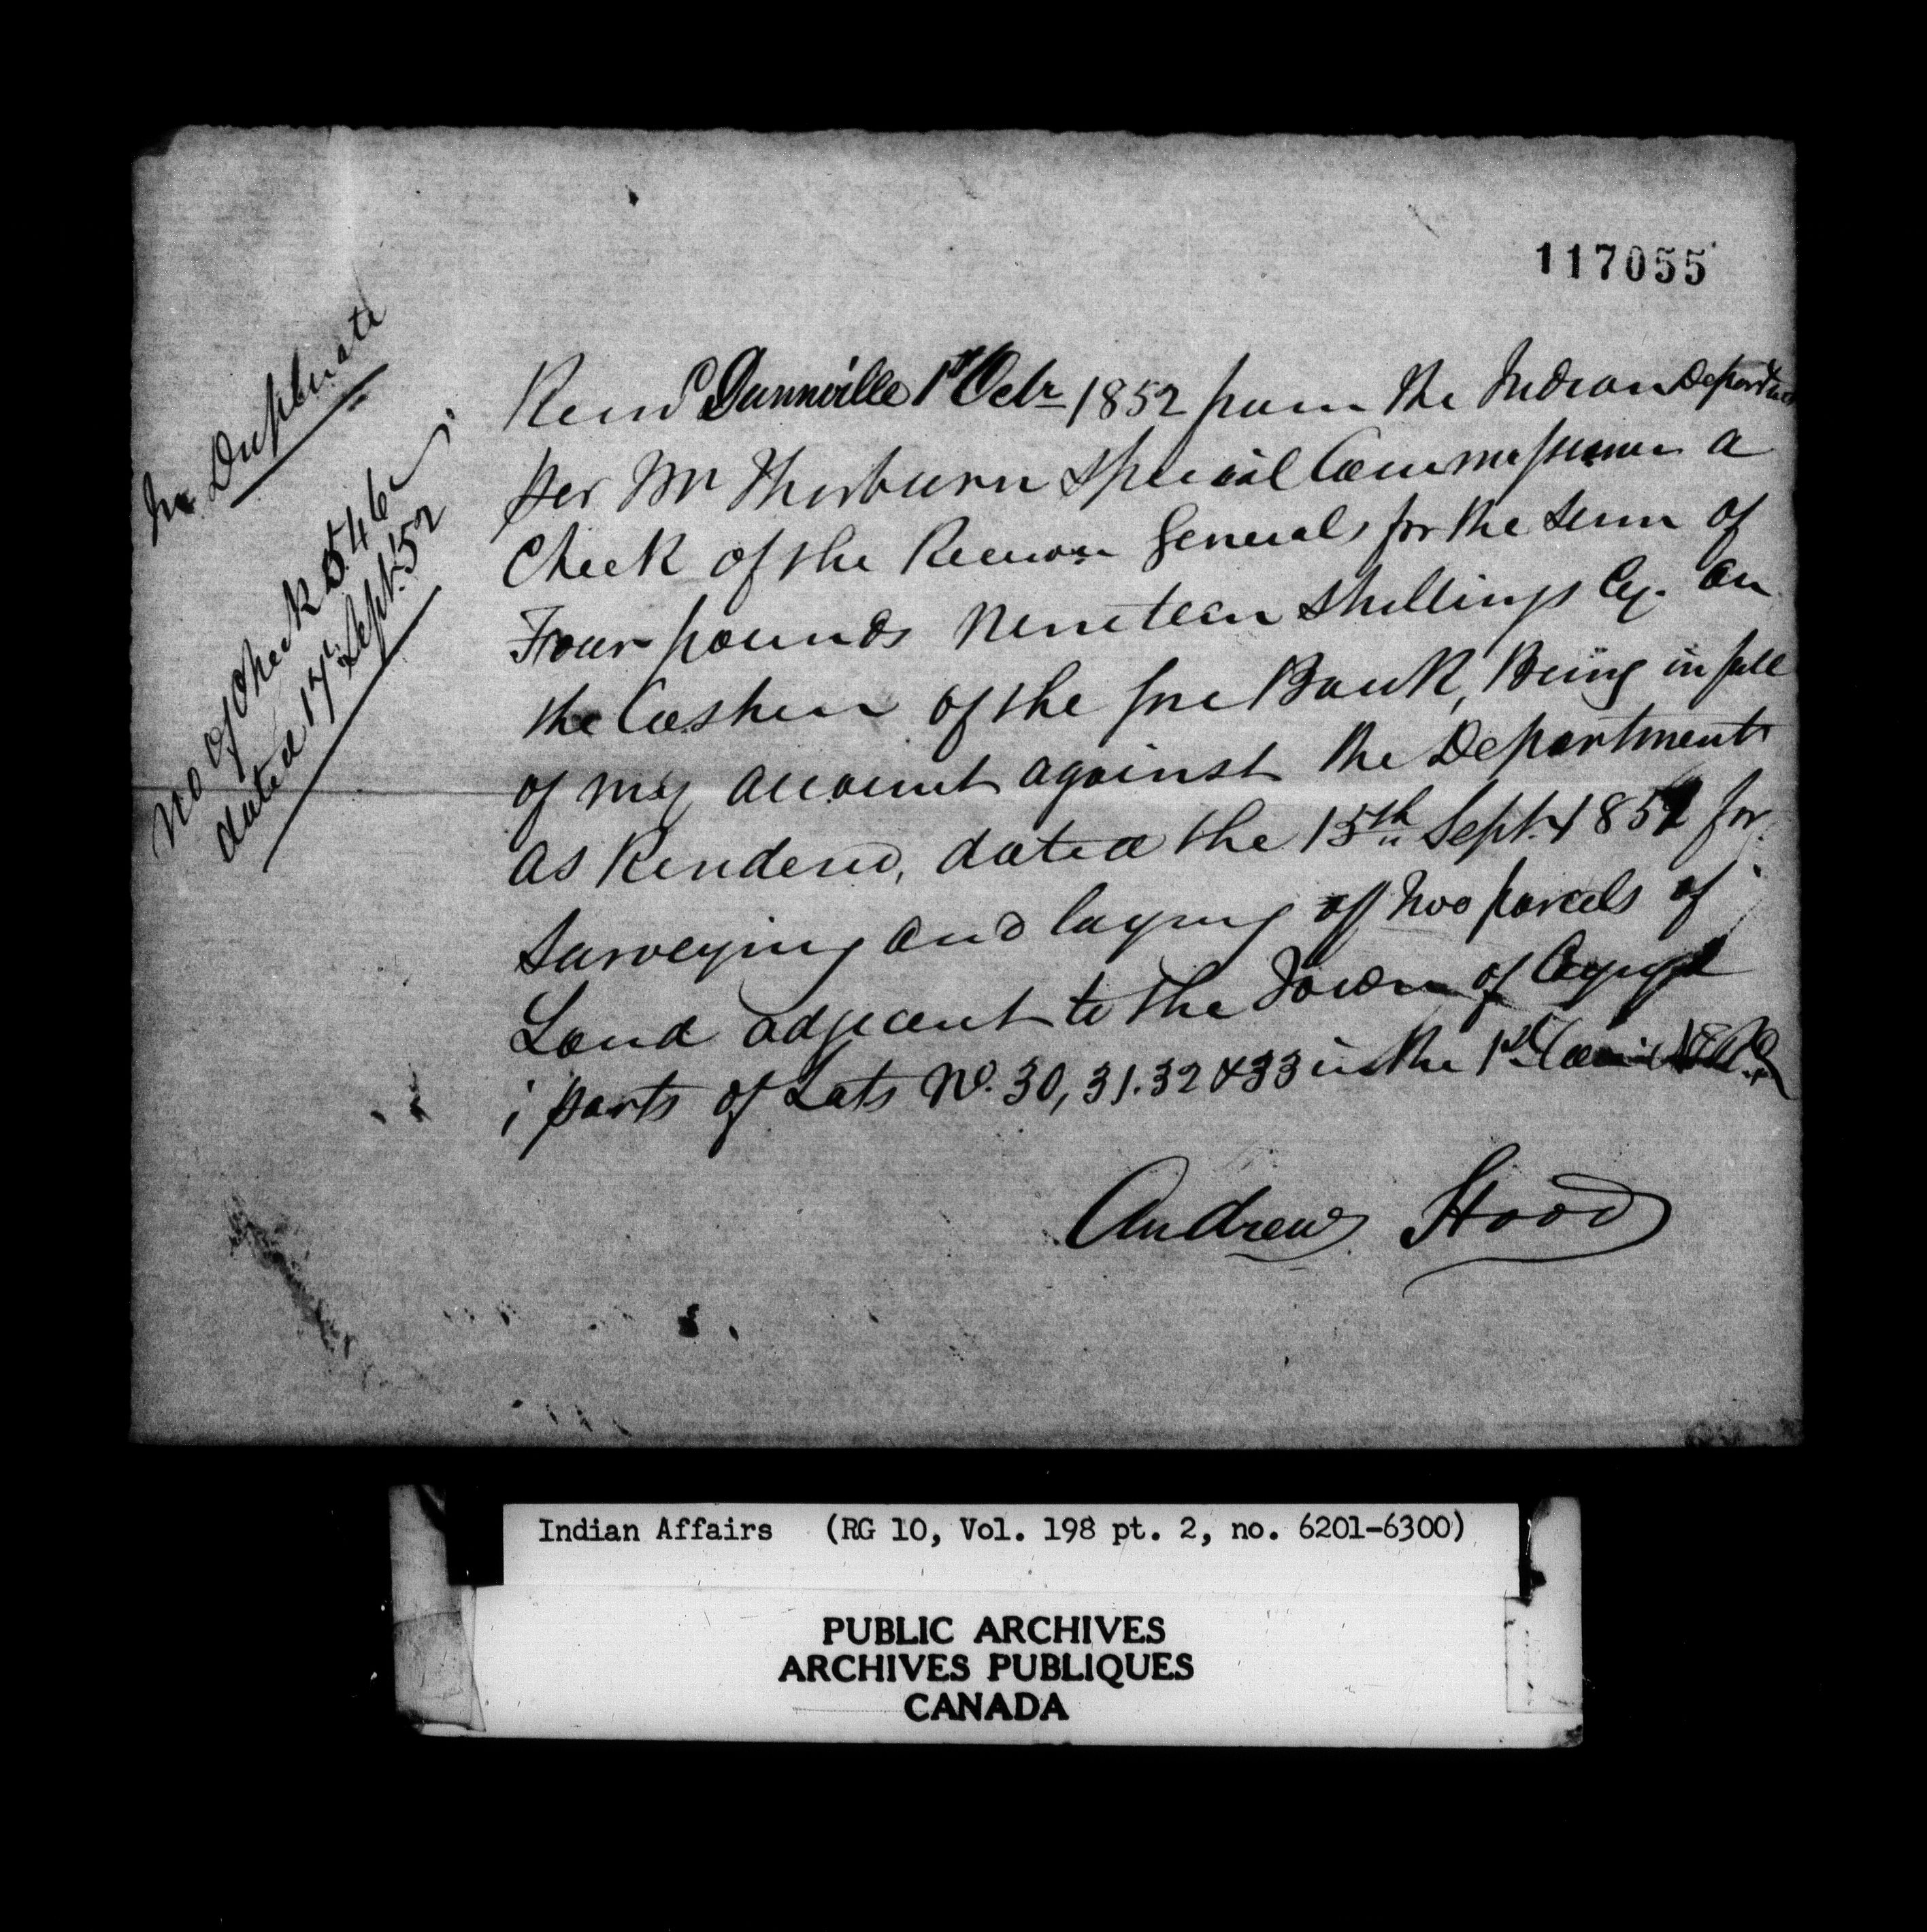 117055
In Duplicate
No of Check 546
dated 17 Sept. 52
Recd Dunnville 1st Octr 1852 from the Indian Department
per Mr Thorburn Special Commissioner a
Check of the Receiver General for the sum of
Four pounds Nineteen Shillings Cy. on
the Cashier of the Bank, Being in full
of my account against the Department
as Rendered, dated the 15th Sept. 1852 for
Surveying and laying off two parcels of
Land adjacent to the Town of Cayuga
; parts of Lots No. 30, 31. 32 & 33 in the 1st
Andrew Hood
Indian Affairs (RG 10, Vol. 198 pt. 2, no. 6201-6300)
PUBLIC ARCHIVES
ARCHIVES PUBLIQUES
CANADA